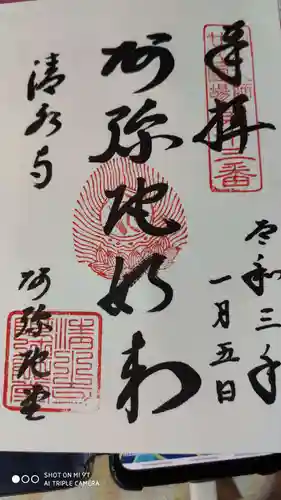 奉拝
令和三年
一月五日
阿弥陀如来
清水寺
阿弥陀堂
SHOT ON MI 9T
AI TRIPLE CAMERA